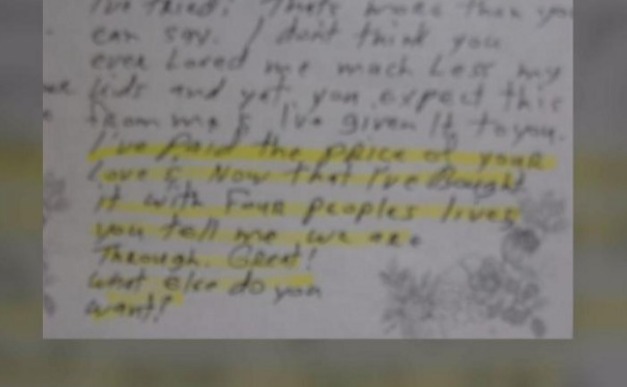 I've tried! Thats more than you
can say. I dont think you
ever Loved me much Less my
kids and yet, you expect this
from me & I've given It to you.
I've Paid the price of your
Love & Now that I've Bought
it with Four peoples lives,
you tell me we are
Through. Great!
what else do you
want!